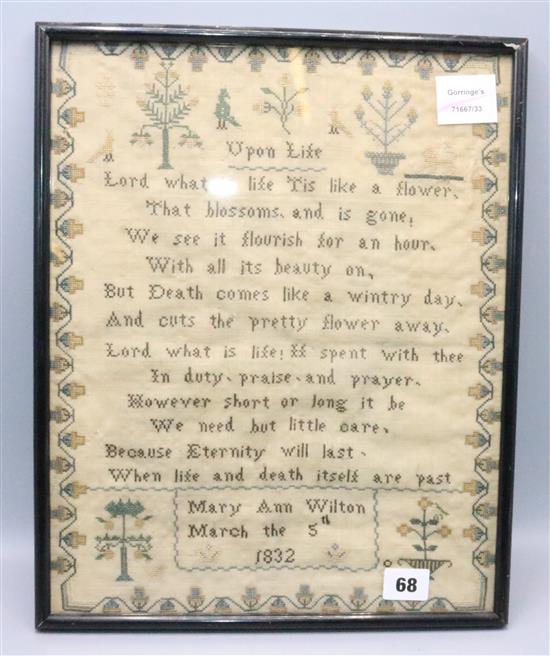 Gorringe's
71667/33
Upon Life
Lord what life Tis like a flower,
That blossoms, and is gone,
We see it flourish for an hour,
With all its beauty on,
But Death comes like a wintry day,
And cuts the pretty flower away,
Lord what is life! If spent with thee
In duty, praise, and prayer,
However short or long it be
We need but little care,
Because Eternity will last,
When life and death itself are past
Mary Ann Wilton
March the 5th
1832
68